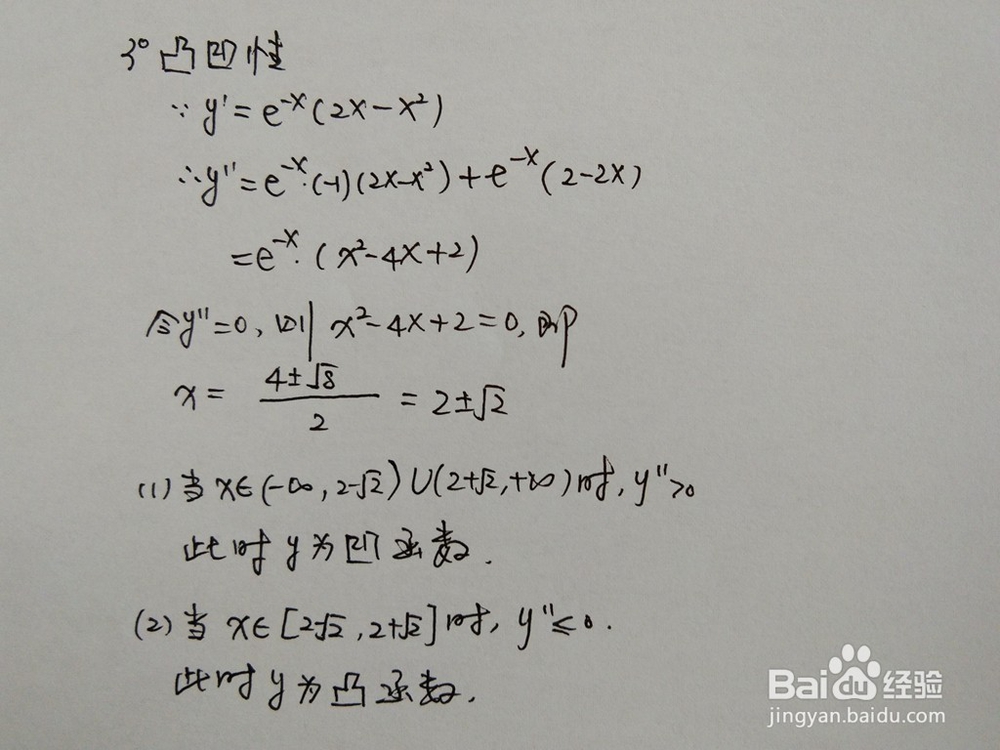 3° 凸凹性
∵ y' = e^{-x}(2x-x²)
∴ y'' = e^{-x}·(-1)(2x-x²)+e^{-x}(2-2x)
= e^{-x}·(x²-4x+2)
令y''=0, 则 x²-4x+2=0, 即
x = (4±√8)/2 = 2±√2
(1) 当 x∈(-∞, 2-√2)∪(2+√2,+∞)时, y''>0
此时 y 为凹函数.
(2) 当 x∈[2-√2, 2+√2]时, y''≤0.
此时 y 为凸函数.
Baidu 经验
jingyan.baidu.com